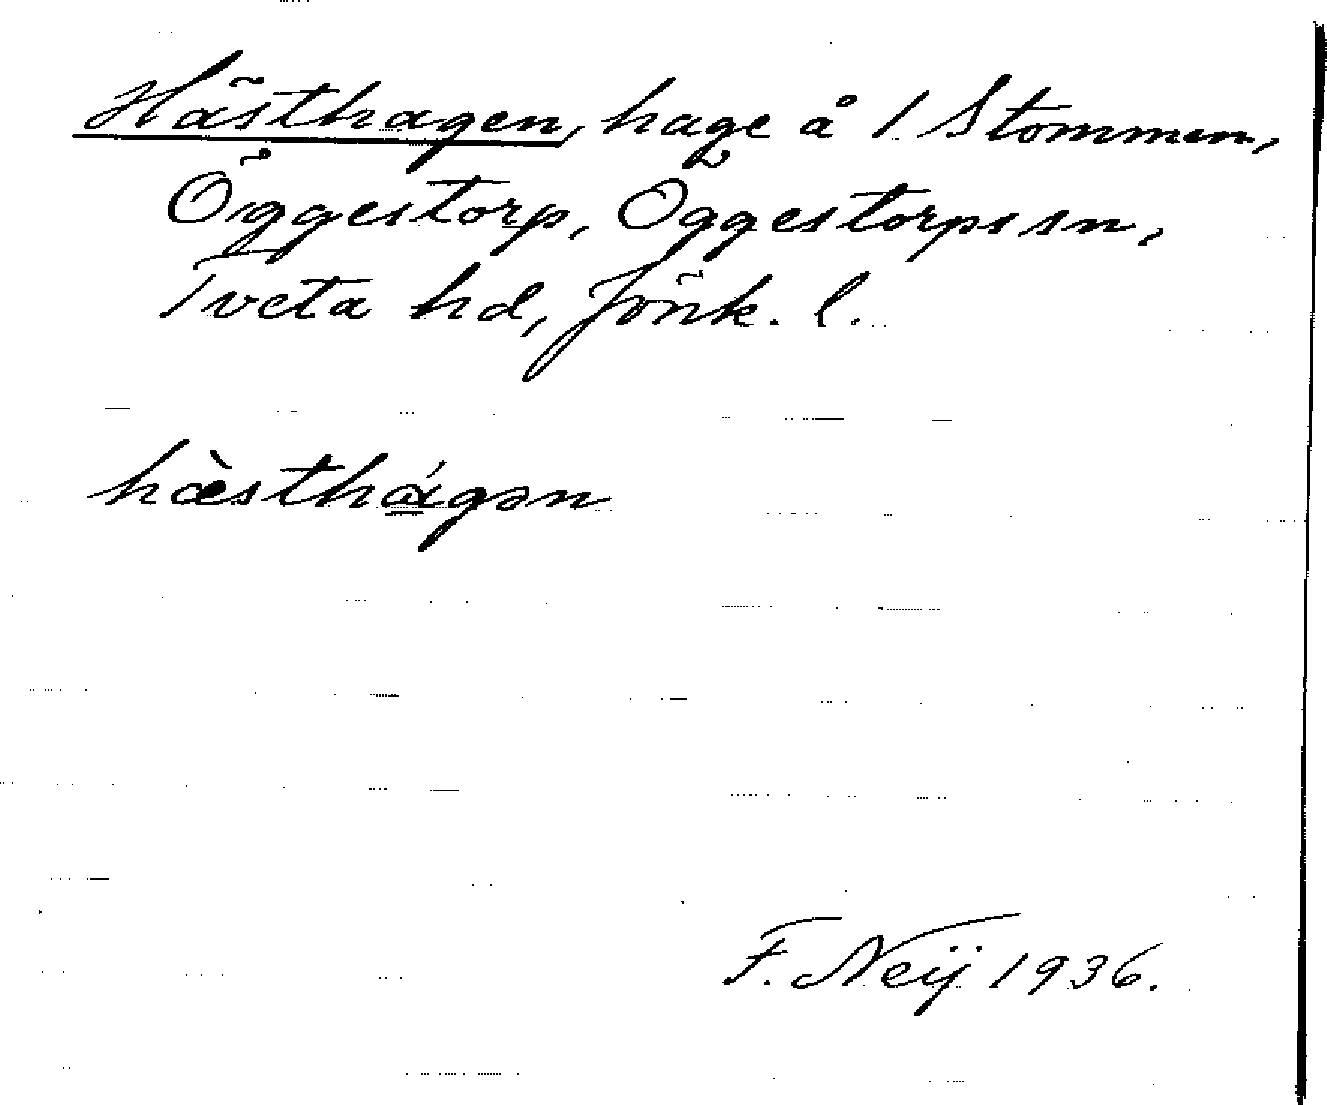 Hästhagen, hage å 1 Stommen,
Öggestorp, Öggestorps sn,
Tveta hd, Jönk. l.
hæ̀sthágən
F. Neij 1936.